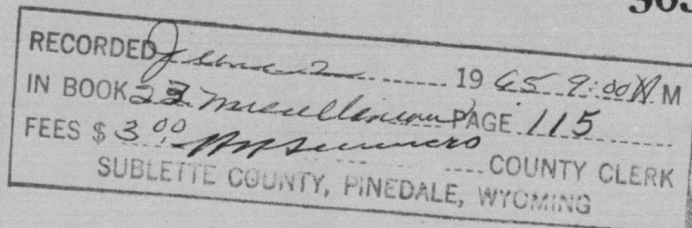 RECORDED June 2 1965 9:00 A M
IN BOOK 22 Miscellaneous PAGE 115
FEES $ 3.00 Summers COUNTY CLERK
SUBLETTE COUNTY, PINEDALE, WYOMING